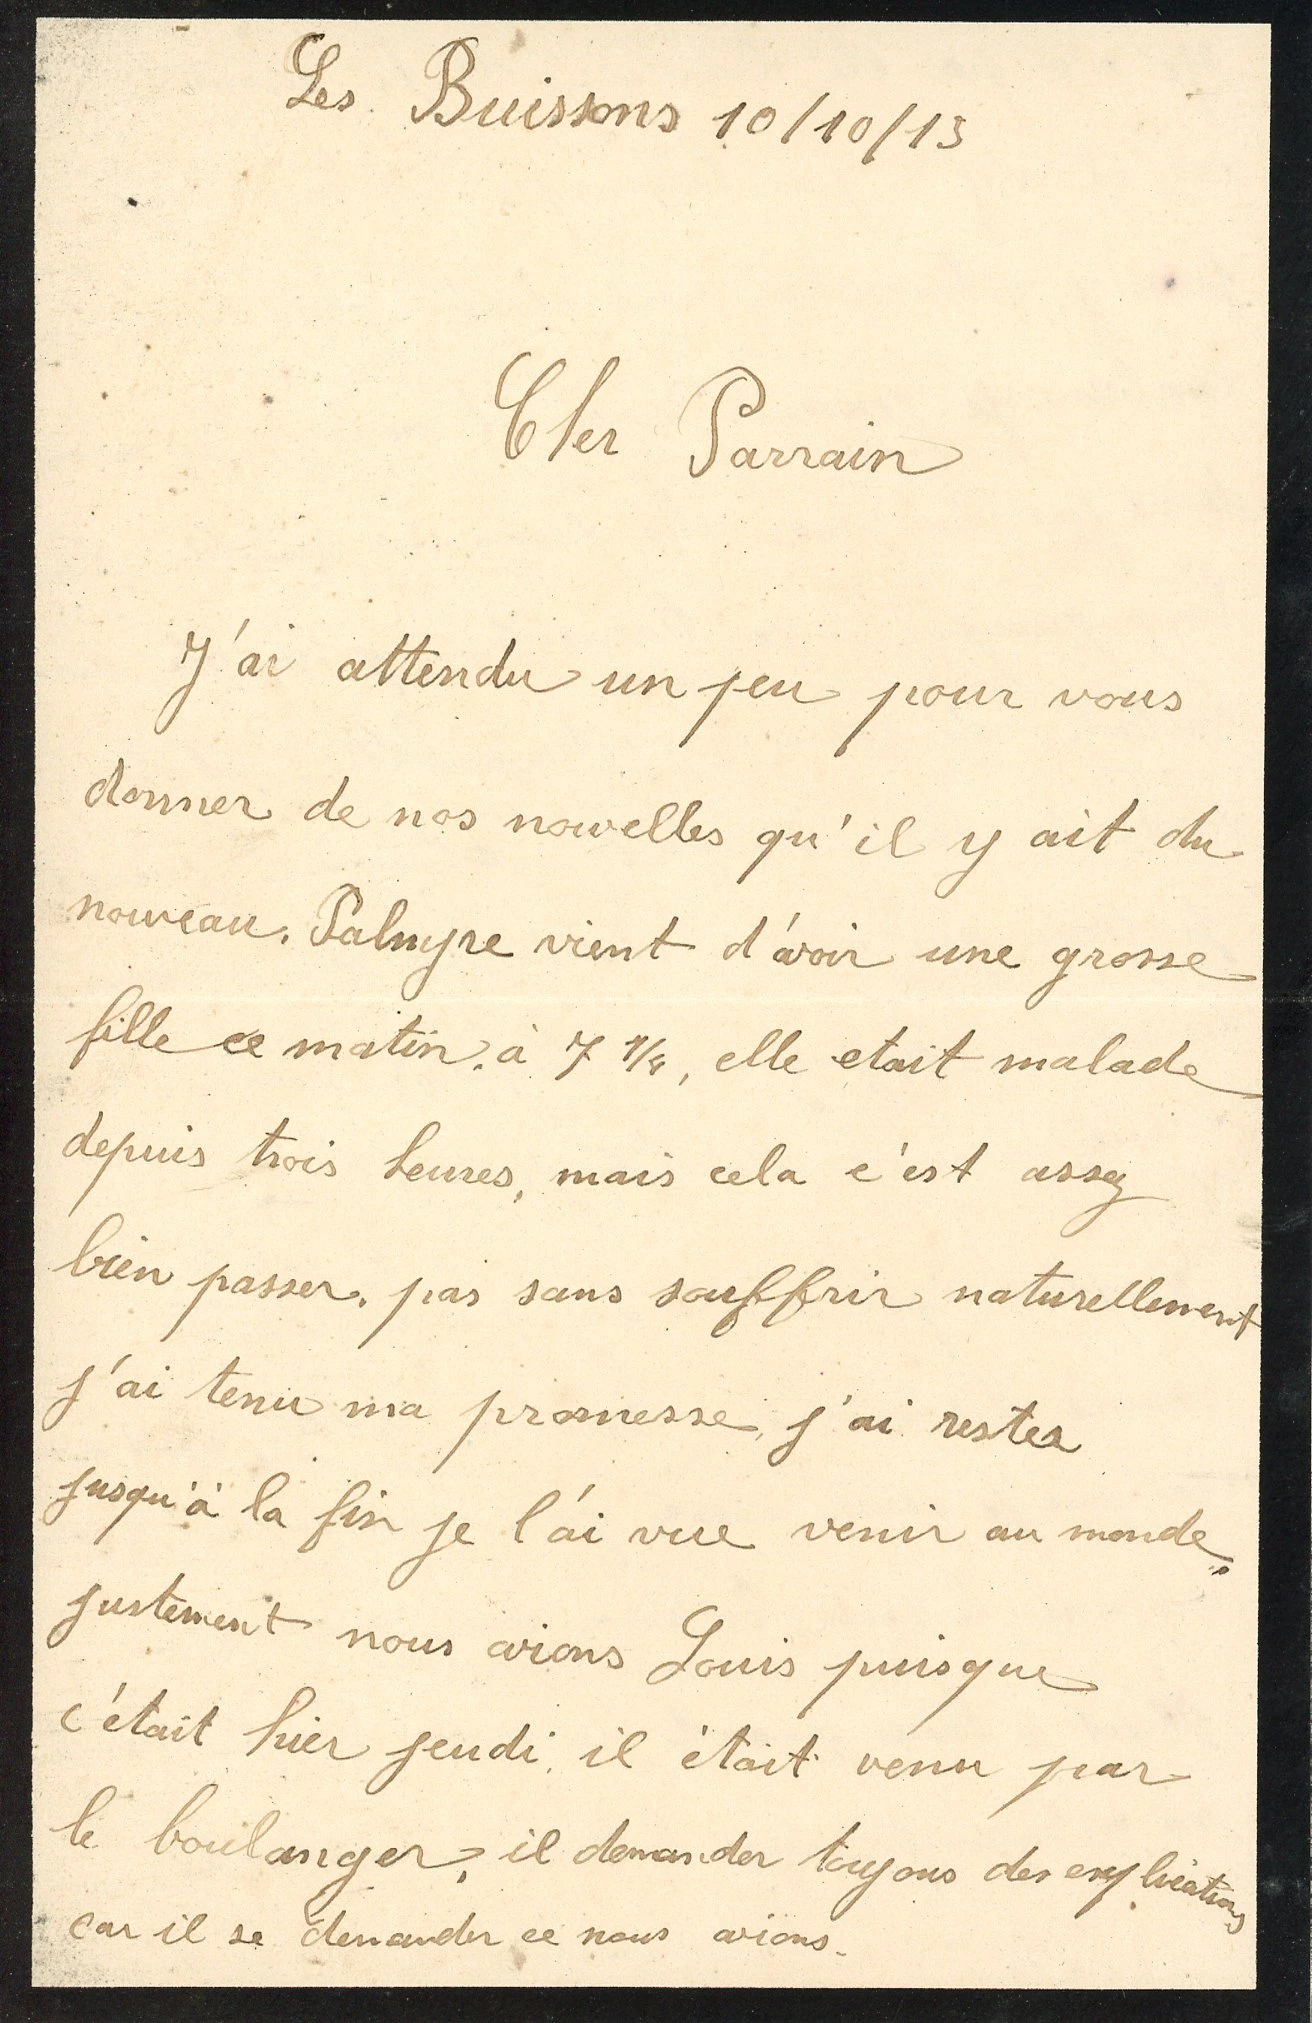 Les Buissons 10/10/13
Cher Parrain
J'ai attendu un peu pour vous
donner de nos nouvelles qu'il y ait du
nouveau. Palmyre vient d'avoir une grosse
fille ce matin, à 7 1/4, elle etait malade
depuis trois heures, mais cela c'est assez
bien passer, pas sans souffrir naturellement
j'ai tenu ma promesse, j'ai restea
jusqu'à la fin je l'ai vue venir au monde,
justement nous avions Louis puisque
c'était hier jeudi, il était venu par
le boulanger, il demander toujous des explications
car il se demander ce nous avions.